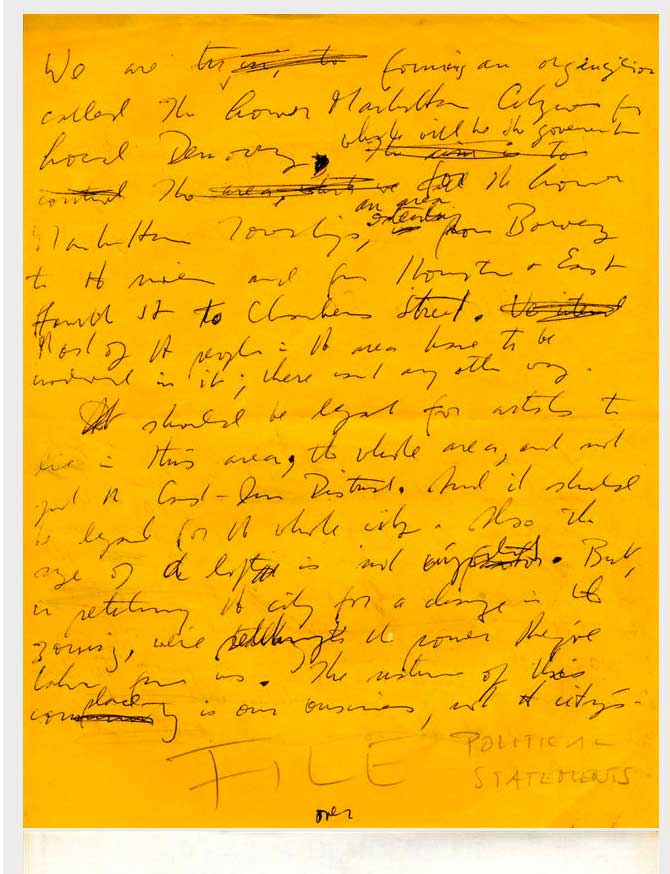 We are forming an organization
called The Lower Manhattan Citizens for
Local Democracy, which will be the government
The Lower
an area
Manhattan Township, from Bowery
to the river and from Houston & East
Fourth St to Chambers Street.
Most of the people in the area have to be
involved in it; there isn't any other way.
It should be legal for artists to
live in this area, the whole area, and not
just the Cast-Iron District. And it should
be legal for the whole city. Also the
size of a loft is not important. But,
in petitioning the city for a change in the
zoning, we're the power they've
taken from us. The nature of this
place
is our business, not the city's.
FILE POLITICAL
STATEMENTS
over